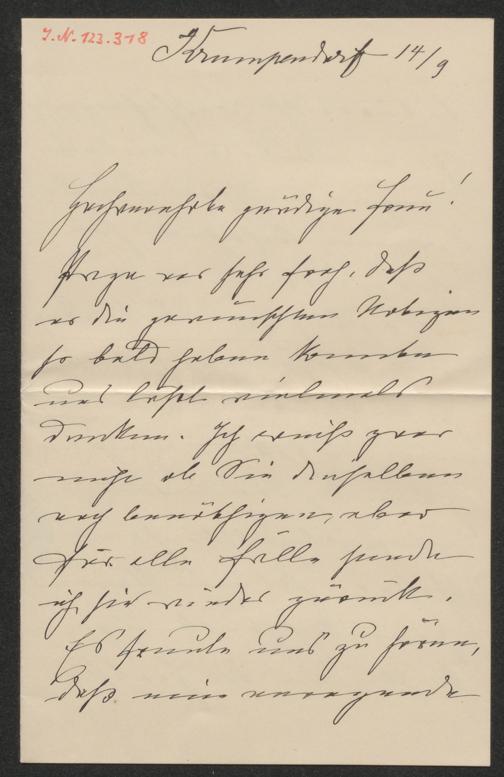 J.N. 123.318
Krumpendorf 14/9
Hochverehrte gnädige Frau!
war sehr froh, daß
er die gewünschten Notizen
so bald haben konnte
und läßt vielmals
danken. Ich weiß zwar
nicht ob Sie dieselben
noch benöthigen, aber
für alle Fälle sende
ich sie wieder zurück.
Es freute uns zu hören,
daß eine anregende